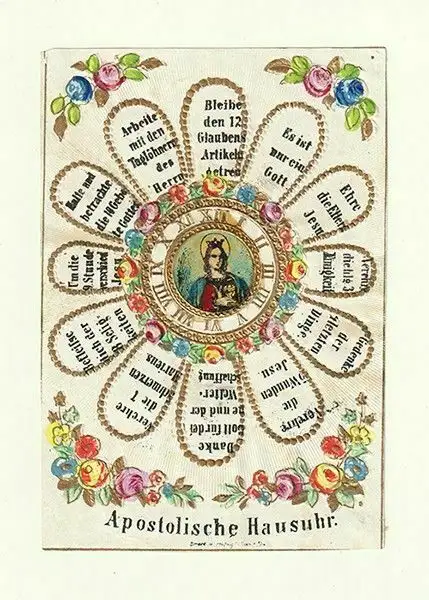 Bleibe
den 12
Glaubens
Artikeln
getreu
Es ist
nur ein
Gott
Ehre
die Eltern
Jesu
Verehre
die hl. 3
Einigkeit
Gedenke
der
4 letzten
Dinge
Verehre
die
5 Wunden
Jesu
Danke
Gott für die
ge und der
Welter-
schaffung
Verehre
die 7
Schmerzen
Mariens
der 8 Selig
keiten
Um die
9. Stunde
verschied
Jesu
Halte und
betrachte
die 10 Gebo
te Gottes
Arbeite
mit den
Taglöhnern
des
Herrn
XII I II III IV V VI VII VIII IX X XI
Apostolische Hausuhr.